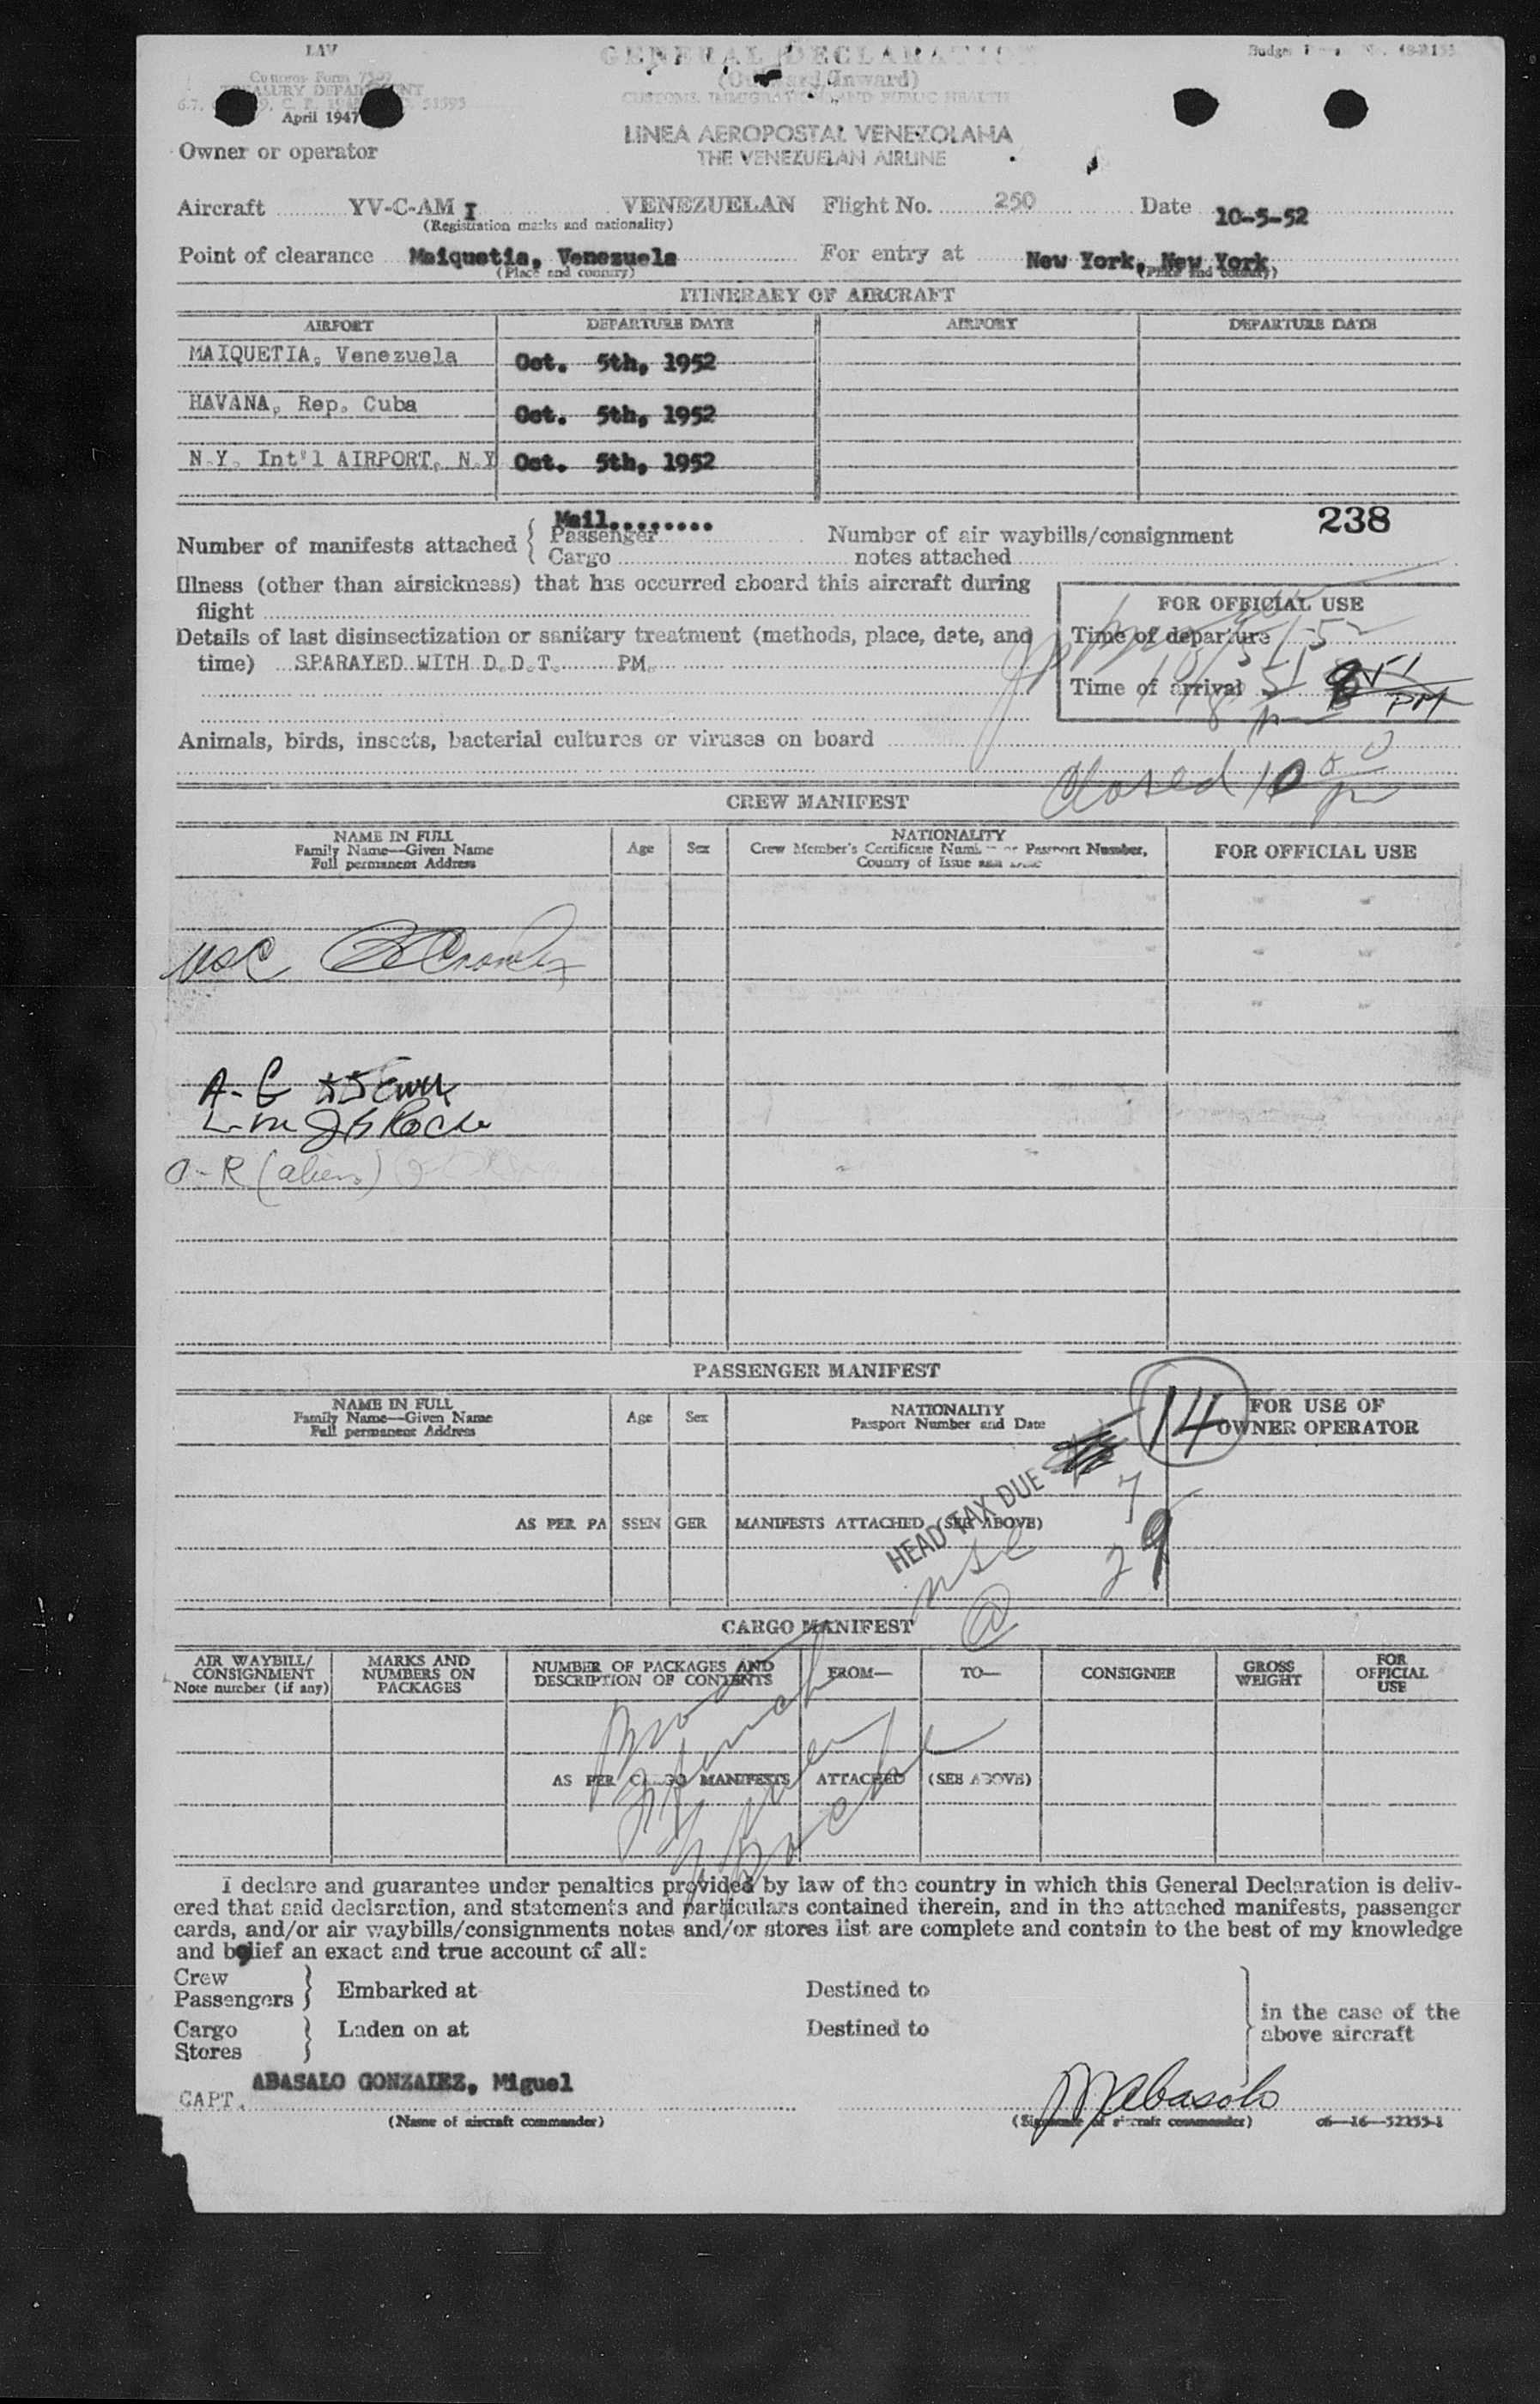 LAV
GENERAL DECLARATION
Customs Form 7507
TREASURY DEPARTMENT
(Outward/Inward)
CUSTOMS, IMMIGRATION AND PUBLIC HEALTH
April 1947
LINEA AEROPOSTAL VENEZOLANA
THE VENEZUELAN AIRLINE
Owner or operator
Aircraft YV-C-AM I VENEZUELAN Flight No. 250 Date 10-5-52
(Registration marks and nationality)
Point of clearance Maiquetia, Venezuela For entry at New York, New York
(Place and country) (Place and country)
ITINERARY OF AIRCRAFT
AIRPORT DEPARTURE DATE AIRPORT DEPARTURE DATE
MAIQUETIA, Venezuela Oct. 5th, 1952
HAVANA, Rep. Cuba Oct. 5th, 1952
N.Y. Int'l AIRPORT, N.Y Oct. 5th, 1952
238
Mail........
Number of manifests attached { Passenger Number of air waybills/consignment
Cargo notes attached
Illness (other than airsickness) that has occurred aboard this aircraft during
flight
FOR OFFICIAL USE
Details of last disinsectization or sanitary treatment (methods, place, date, and
time) SPARAYED WITH D.D.T. PM.
Time of departure
Time of arrival 8 51 PM
Animals, birds, insects, bacterial cultures or viruses on board
Closed 10 00 pm
CREW MANIFEST
NAME IN FULL
Family Name—Given Name
Full permanent Address
Age Sex
NATIONALITY
Crew Member's Certificate Number or Passport Number,
Country of Issue and Date
FOR OFFICIAL USE
USC
A-C
L-M JG Roche
O-R (aliens)
PASSENGER MANIFEST
NAME IN FULL
Family Name—Given Name
Full permanent Address
Age Sex
NATIONALITY
Passport Number and Date
14
FOR USE OF
OWNER OPERATOR
HEAD TAX DUE
7
AS PER PASSENGER MANIFESTS ATTACHED (SEE ABOVE)
USC 29
CARGO MANIFEST
AIR WAYBILL/
CONSIGNMENT
Note number (if any)
MARKS AND
NUMBERS ON
PACKAGES
NUMBER OF PACKAGES AND
DESCRIPTION OF CONTENTS
FROM— TO— CONSIGNEE
GROSS
WEIGHT
FOR
OFFICIAL
USE
AS PER CARGO MANIFESTS ATTACHED (SEE ABOVE)
I declare and guarantee under penalties provided by law of the country in which this General Declaration is deliv-
ered that said declaration, and statements and particulars contained therein, and in the attached manifests, passenger
cards, and/or air waybills/consignments notes and/or stores list are complete and contain to the best of my knowledge
and belief an exact and true account of all:
Crew
Passengers } Embarked at Destined to
in the case of the
above aircraft
Cargo
Stores } Laden on at Destined to
CAPT. ABASALO GONZALEZ, Miguel MAbasolo
(Name of aircraft commander) (Signature of aircraft commander) c6—16—52255-1